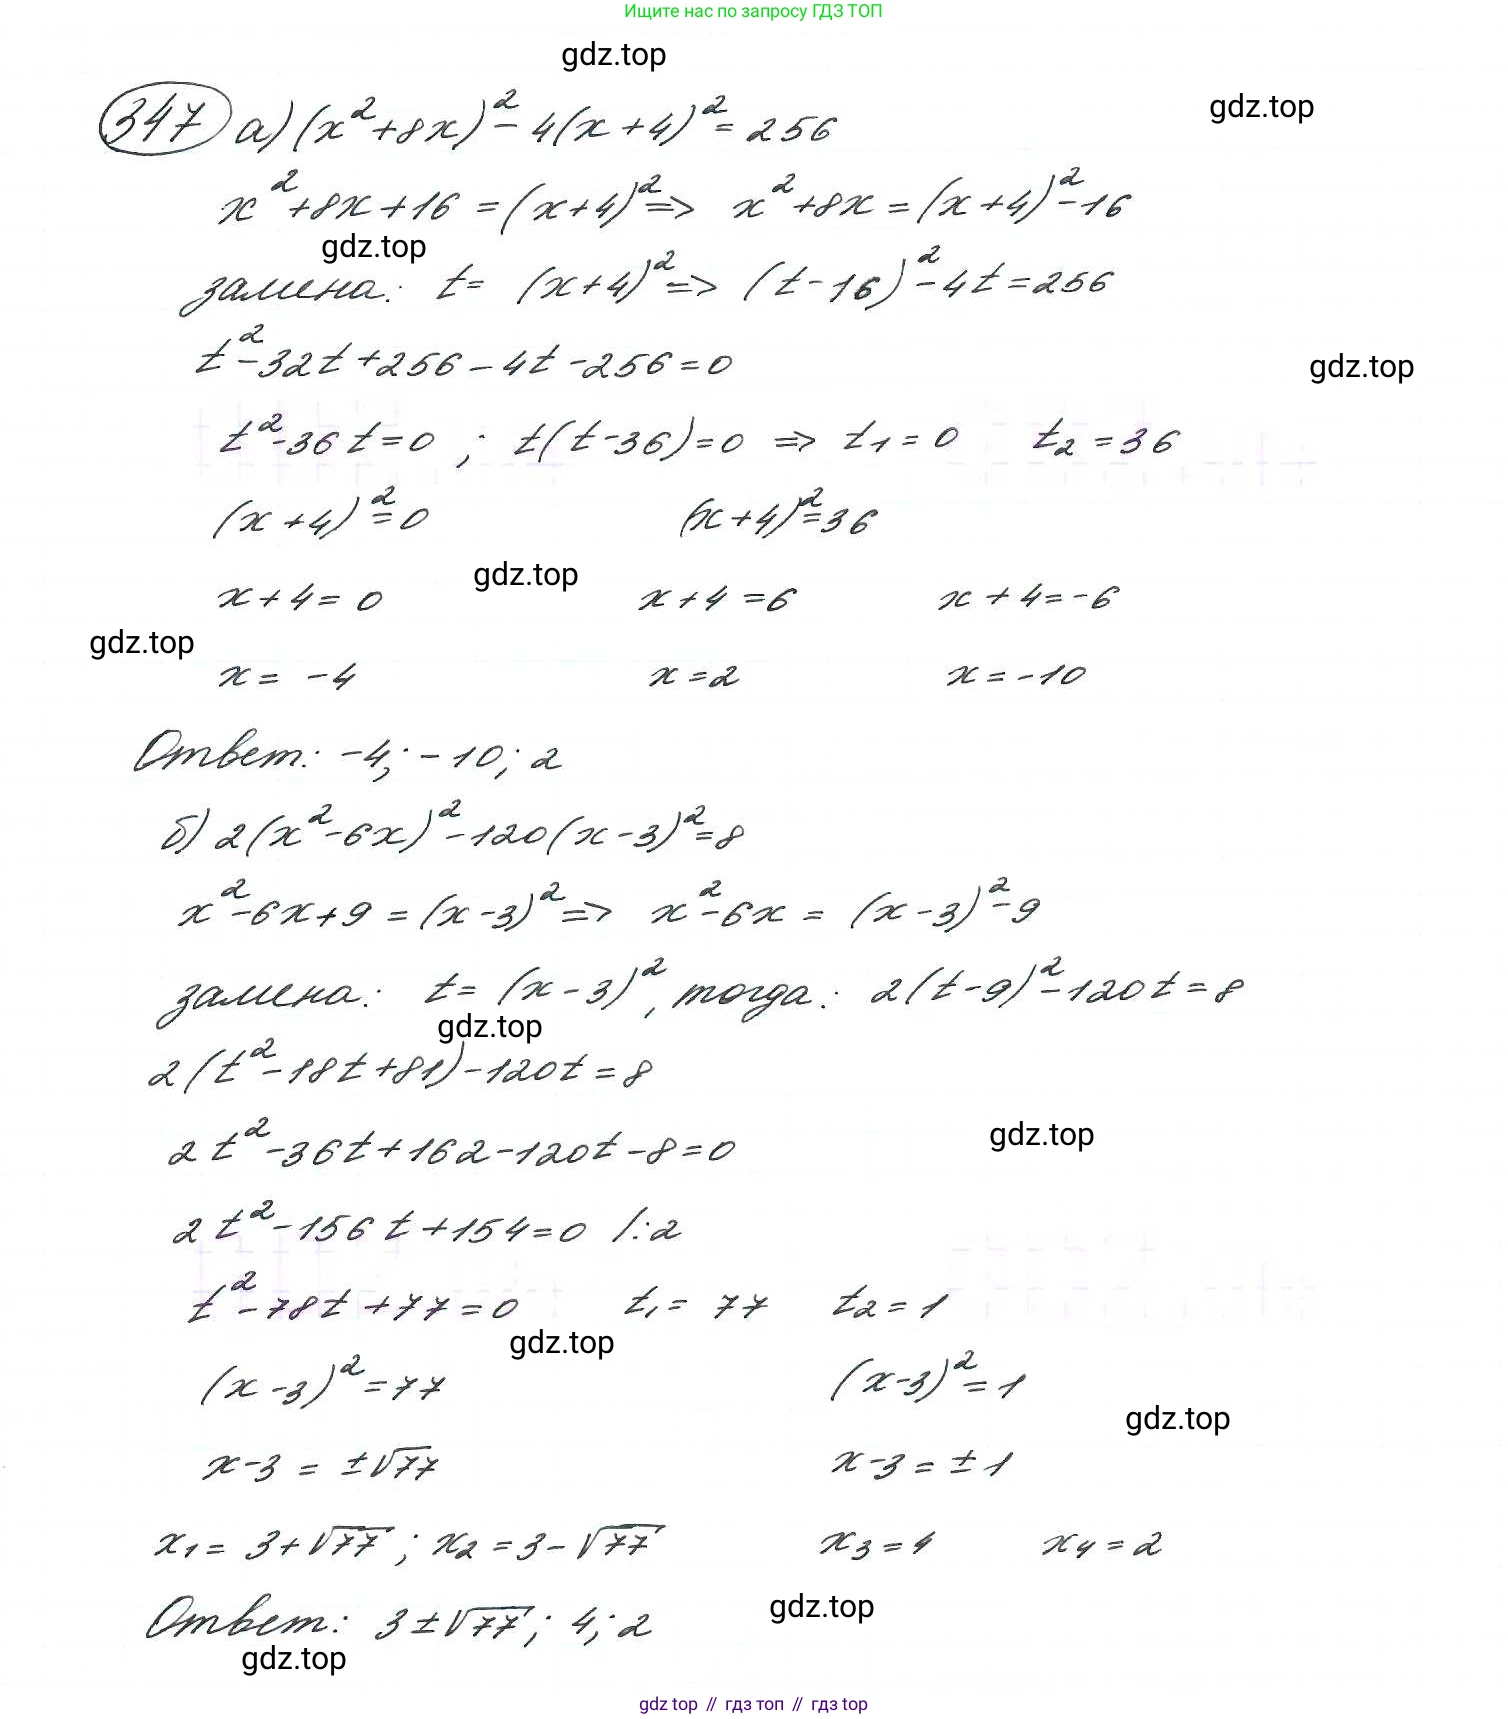 Ищите нас по запросу ГДЗ ТОП
gdz.top
347 а) (x²+8x)² - 4(x+4)² = 256
gdz.top
x²+8x+16 = (x+4)² => x²+8x = (x+4)²-16
gdz.top
замена: t = (x+4)² => (t-16)²-4t=256
t²-32t+256-4t-256=0
gdz.top
t²-36t=0 ; t(t-36)=0 => t₁=0 t₂=36
(x+4)²=0 (x+4)²=36
gdz.top
x+4=0 x+4=6 x+4=-6
gdz.top
x=-4 x=2 x=-10
Ответ: -4; -10; 2
б) 2(x²-6x)²-120(x-3)²=8
x²-6x+9=(x-3)² => x²-6x = (x-3)²-9
замена: t=(x-3)², тогда: 2(t-9)²-120t=8
gdz.top
2(t²-18t+81)-120t=8
gdz.top
2t²-36t+162-120t-8=0
2t²-156t+154=0 /:2
t²-78t+77=0 t₁=77 t₂=1
gdz.top
(x-3)²=77 (x-3)²=1
gdz.top
x-3=±√77 x-3=±1
x₁=3+√77; x₂=3-√77 x₃=4 x₄=2
gdz.top
Ответ: 3±√77; 4; 2
gdz.top
gdz top // гдз топ // гдз top